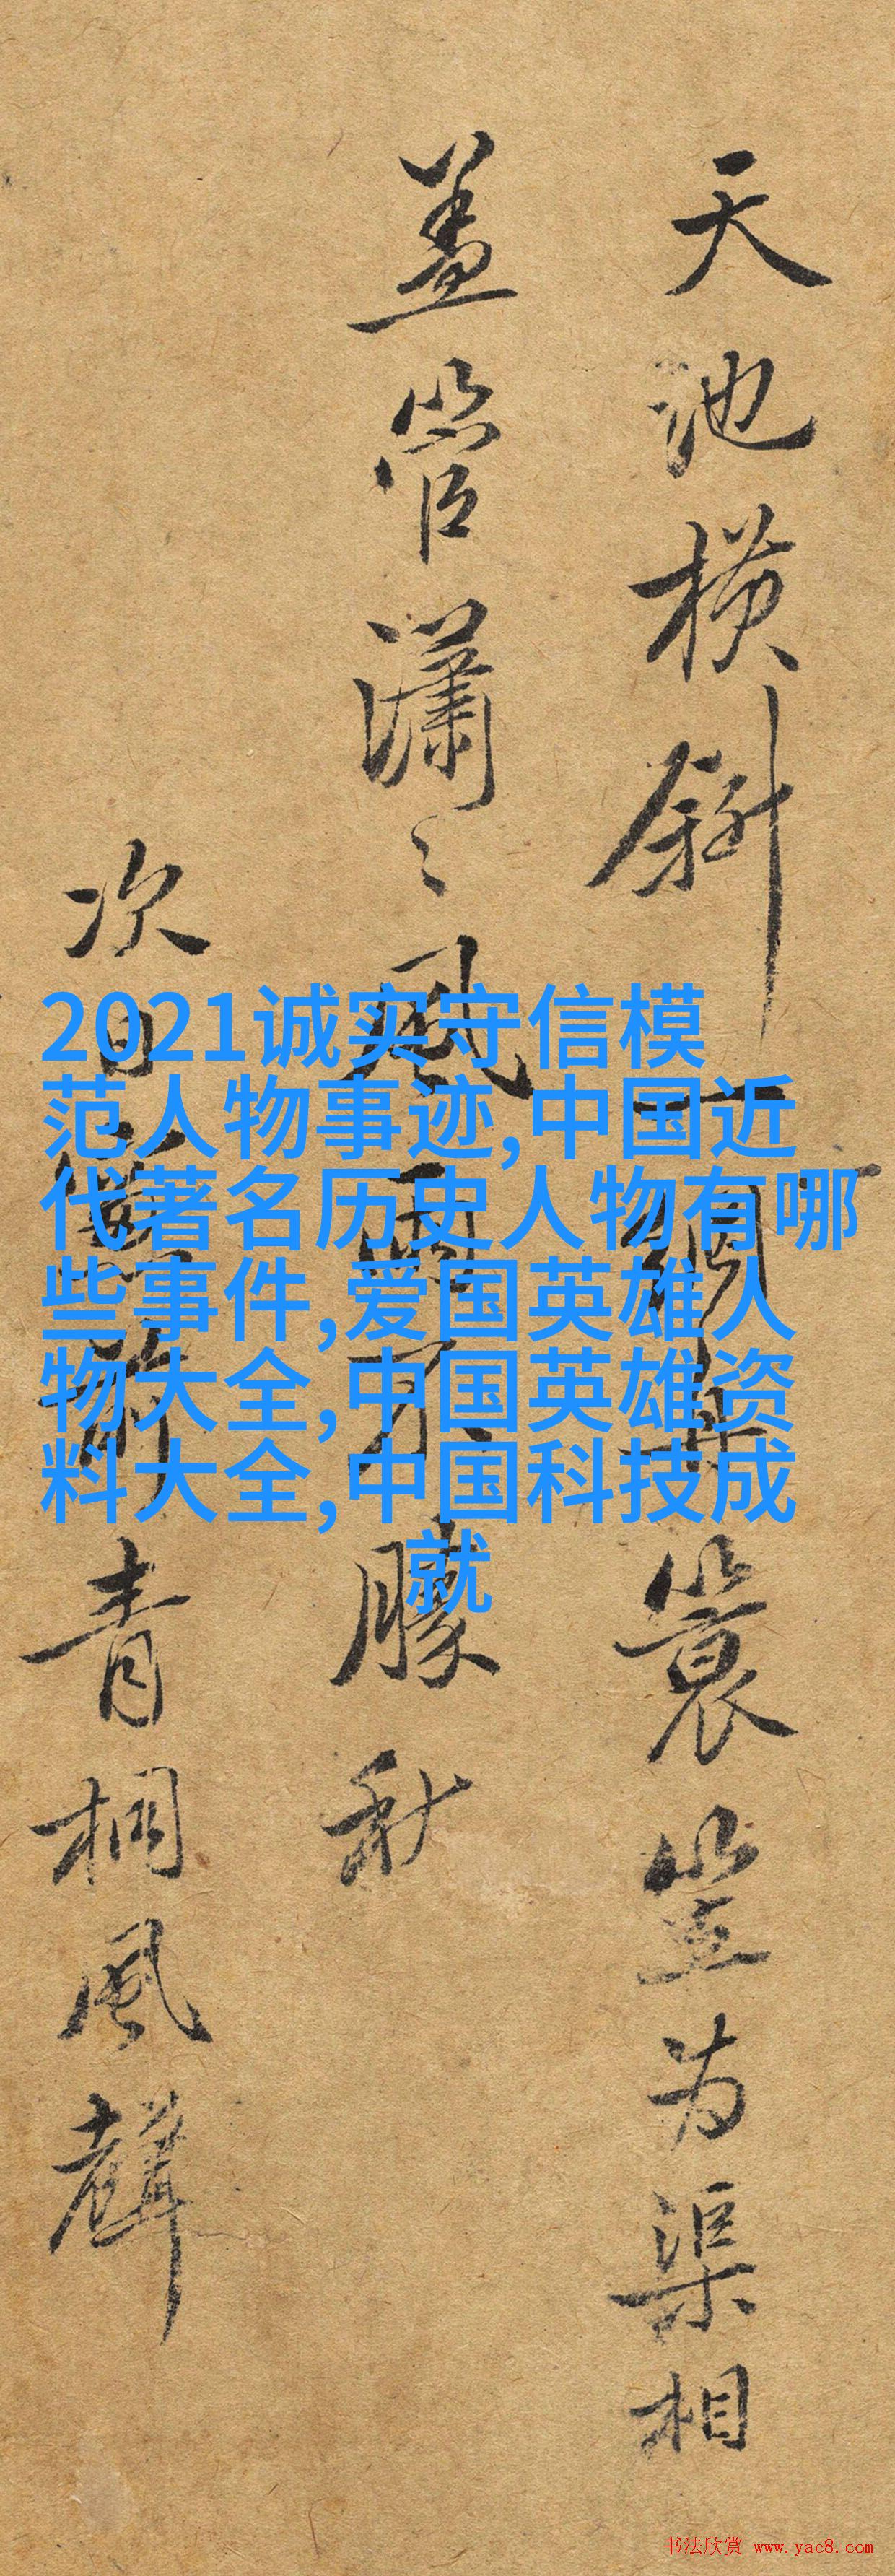 天池橫斜一簑笠为渠相
盖管瀟〻風雨不秋
次日前青桐風聲
2021诚实守信模
范人物事迹,中国近
代著名历史人物有哪
些事件,爱国英雄人
物大全,中国英雄资
料大全,中国科技成
就
书法欣赏 www.yac8.com